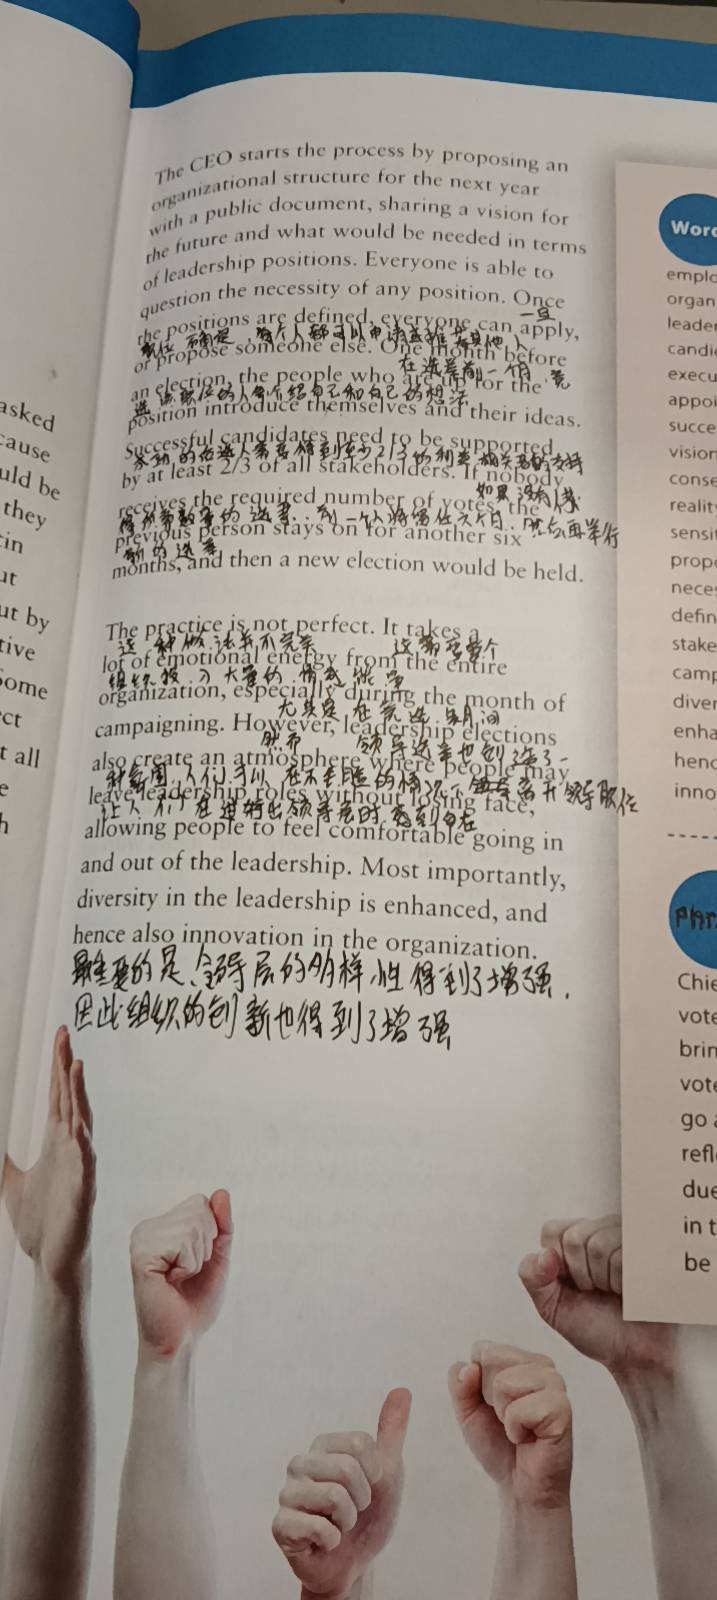 asked
cause
uld be
they
tin
ut
ut by
tive
Some
ect
t all
e
h
The CEO starts the process by proposing an
organizational structure for the next year
with a public document, sharing a vision for
the future and what would be needed in terms
of leadership positions. Everyone is able to
question the necessity of any position. Once
一旦
the positions are defined, everyone can apply,
职位 每个人都可以申请或推荐其他人
or propose someone else. One month before
在选举前一个月,竞
an election, the people who are up for the
选该职位的人会介绍自己和自己的想法
position introduce themselves and their ideas.
Successful candidates need to be supported
成功的候选人需要得到至少2/3的利益相关者的支持
by at least 2/3 of all stakeholders. If nobody
如果没有人获
receives the required number of votes, the
得所需数量的选票,前一个人将留任六个月,然后再举行
previous person stays on for another six
新的选举
months, and then a new election would be held.
The practice is not perfect. It takes a
这种做法并不完美 这需要整个
lot of emotional energy from the entire
组织投入大量的情感能量
organization, especially during the month of
尤其是在竞选期间
campaigning. However, leadership elections
然而 领导选举也创造了一
also create an atmosphere where people may
种氛围,人们可以在不丢脸的情况下离开领导职位
leave leadership roles without losing face,
让人们在进出领导层时感到自在
allowing people to feel comfortable going in
and out of the leadership. Most importantly,
diversity in the leadership is enhanced, and
hence also innovation in the organization.
最重要的是,领导层的多样性得到了增强,
因此组织的创新也得到了增强
Word
emplo
organ
leader
candi
execu
appoi
succe
vision
conse
reality
sensit
prope
neces
defin
stake
camp
diver
enha
henc
inno
Phr
Chie
vote
brin
vote
go a
refl
due
in t
be